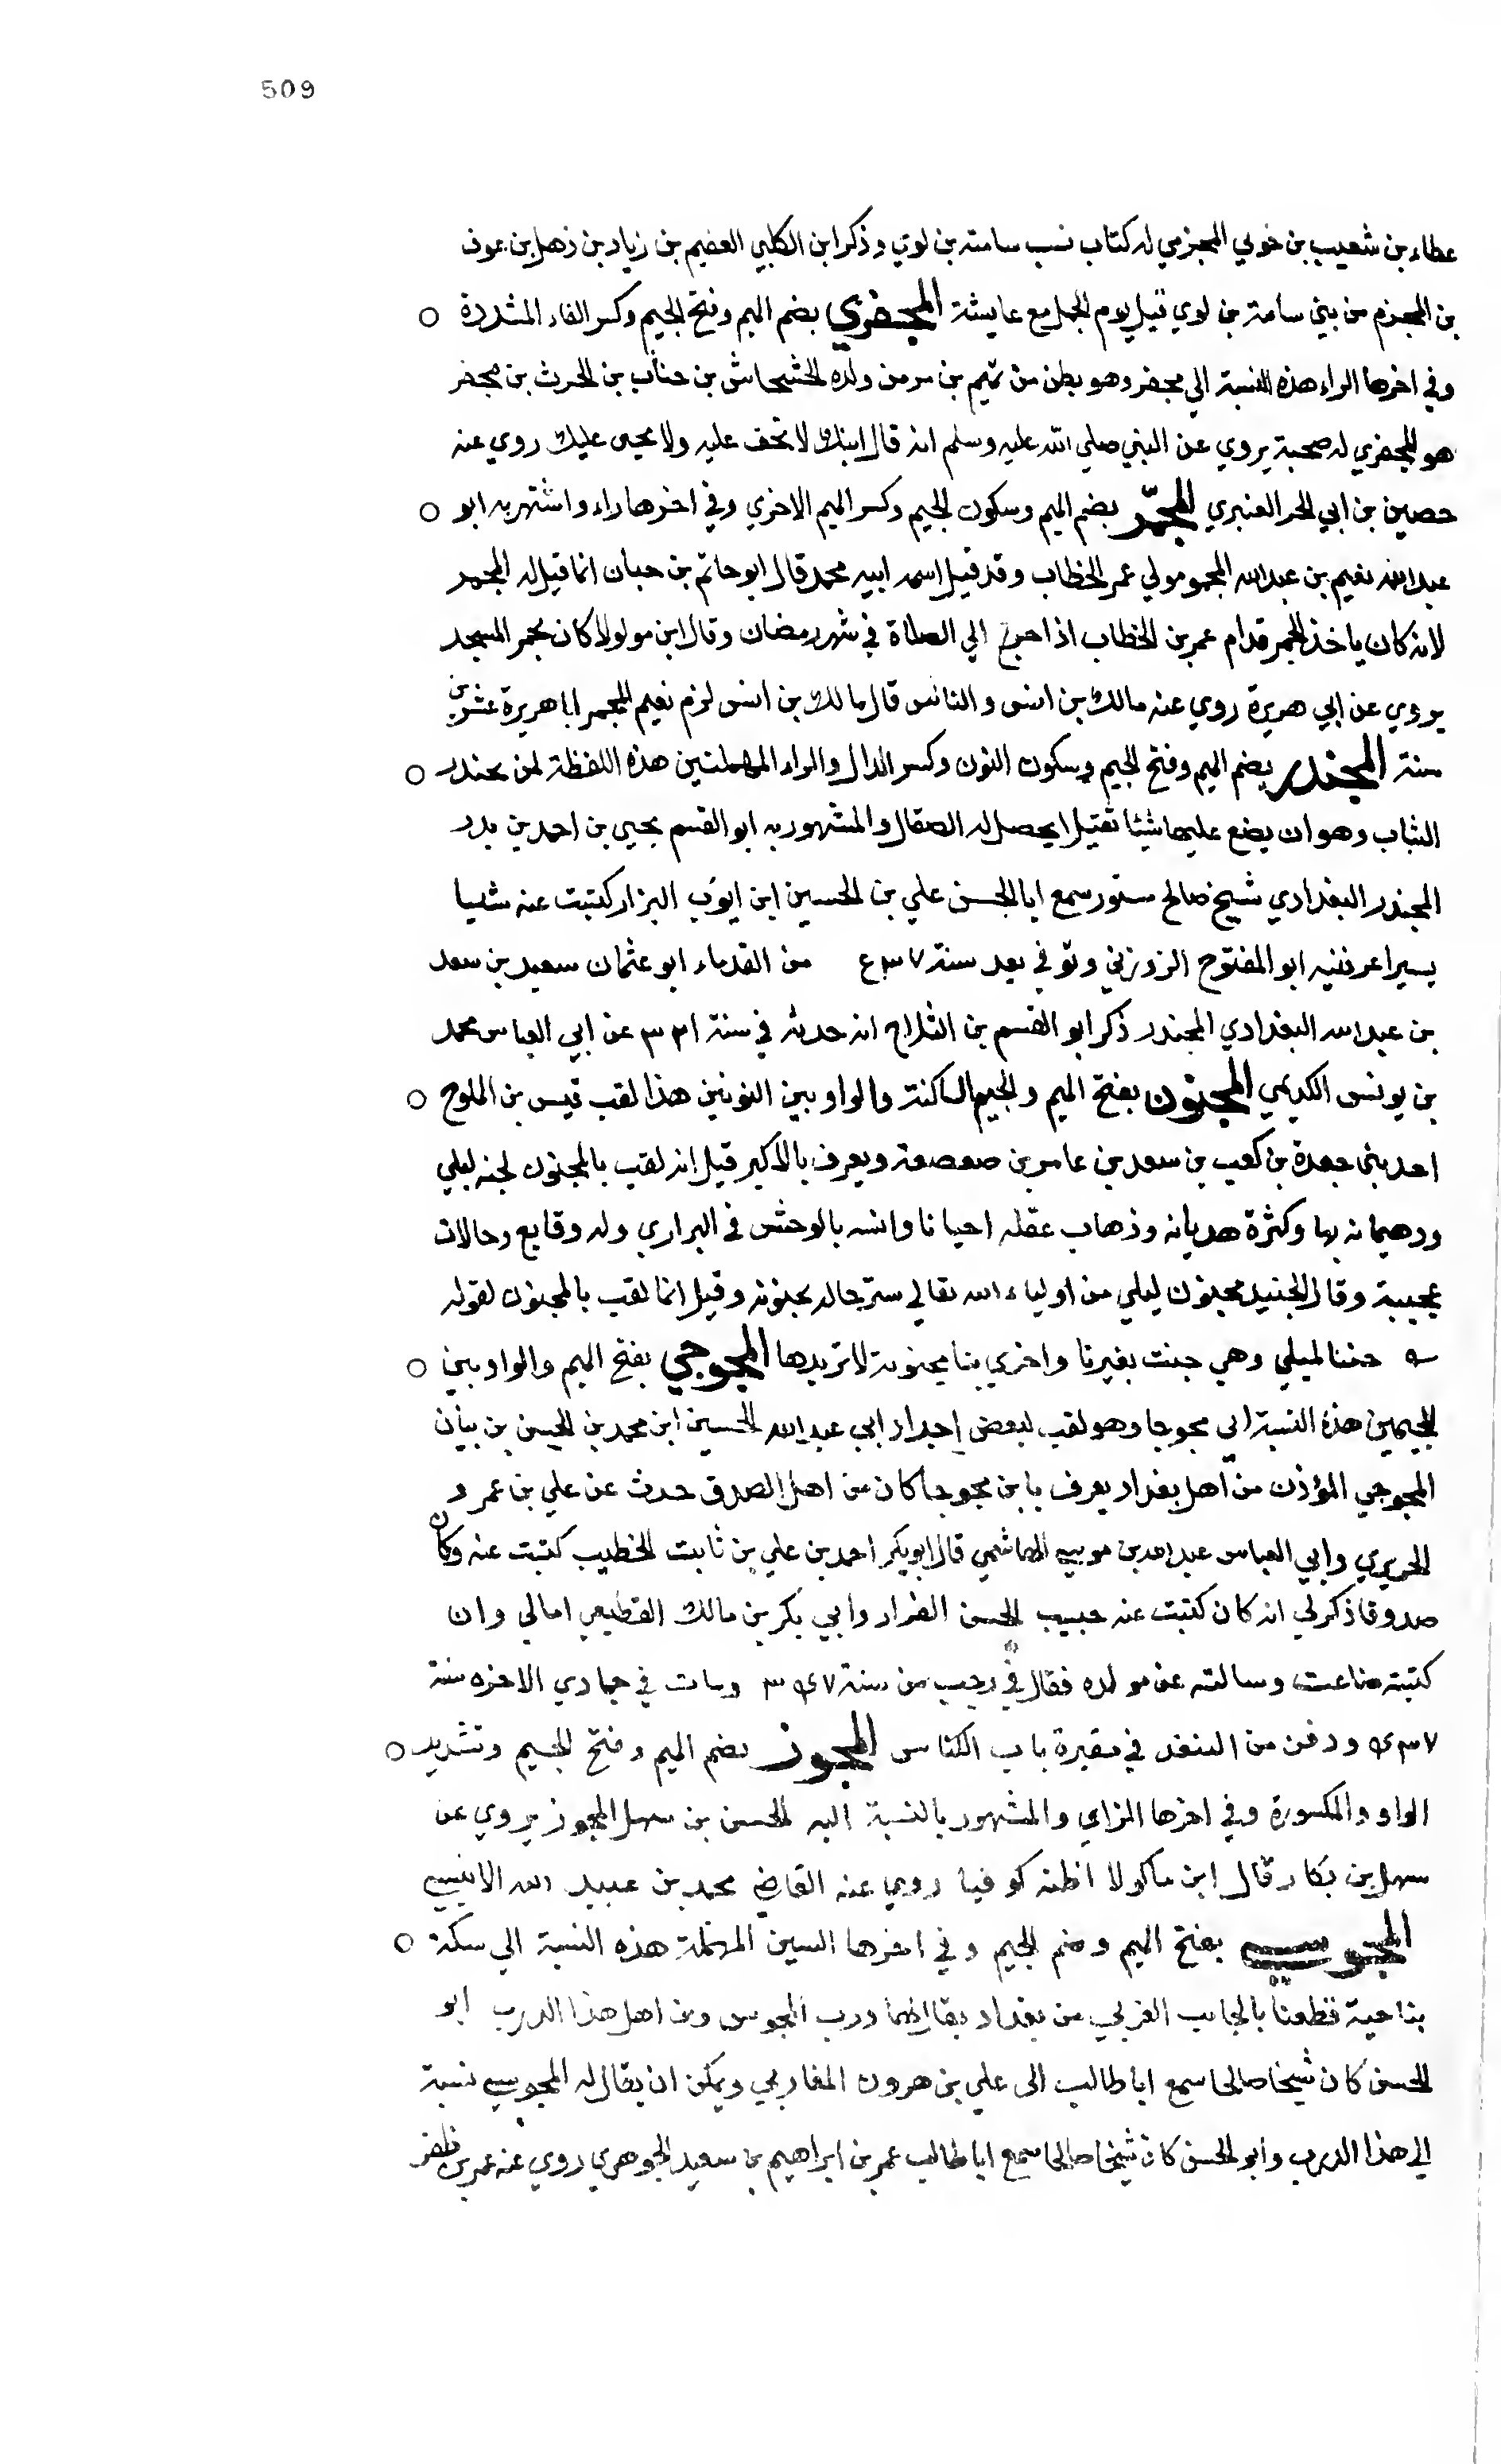 509
عطاء بن شعيب بن خولي المجزمي له كتاب نسب سامة بن لوي وذكر ابن الكلبي العضيم بن زياد بن ذهل بن عوف
بن المجزم من بني سامة بن لوي قتيل يوم الجمل مع عايشة المجفري بضم الميم وفتح الجيم وكسر الفاء المشددة ○
وفي اخرها الراء هذه النسبة الي مجفر وهو بطن من تميم بن مر من ولده الخشخاش بن جناب بن الحرث بن مجفر
هو المجفري له صحبة يروي عن النبي صلي الله عليه وسلم انه قال ابنك لا تخف عليه ولا يجنى عليك روي عنه
حصين بن ابي الحر العنبري المجمّر بضم الميم وسكون الجيم وكسر الميم الاخري وفي اخرها راء واشتهر به ابو ○
عبد الله نعيم بن عبد الله المجمر مولي عمر الخطاب وقد قيل اسم ابيه محمد قال ابو حاتم بن حبان انما قيل له المجمر
لانه كان ياخذ المجمر قدام عمر بن الخطاب اذا خرج الي الصلاة في شهر رمضان وقال ابن مولولا كان يجمر المسجد
يروي عن ابي هريرة روي عنه مالك بن انس والناس قال مالك بن انس لزم نعيم المجمر ابا هريرة عشرين
سنة المجندر بضم الميم وفتح الجيم وسكون النون وكسر الدال والراء المهملتين هذه اللفظة لمن يجندر ○
الثياب وهو ان يضع عليها شيئا ثقيلا يحصل له الصقال والمشهور به ابو القسم يحيي بن احمد بن بدر
المجندر البغدادي شيخ صالح مستور سمع ابا الحسن علي بن الحسين ابن ايوب البزار كتبت عنه شيا
يسيرا عرفنيه ابو الفتوح الزوزني وتوفي بعد سنة ٥٣٧ من القدماء ابو عثمان سعيد بن سعد
بن عبد الله البغدادي المجندر ذكر ابو القسم بن الثلاج انه حدثه في سنة ٣٣١ عن ابي العباس محمد
بن يونس الكديمي المجنون بفتح الميم والجيم الساكنة والواو بين النونين هذا لقب قيس بن الملوح ○
احد بني جعدة بن كعب بن سعد بن عامر بن صعصعة ويعرف بالاكبر قيل انه لقب بالمجنون لحبه ليلي
وهيمانه بها وكثرة هذيانه وذهاب عقله احيانا وانسه بالوحش في البراري وله وقايع وحالات
عجيبة وقال الجنيد مجنون ليلي من اولياء الله تعالي ستر حاله بجنونه وقيل انما لقب بالمجنون لقوله
جننا لميلي وهي جنت بغيرنا واخري بنا مجنونة لا نريدها المجوجي بفتح الميم والواو بين ○
الجيمين هذه النسبة الي مجوجا وهو لقب لبعض اجداد ابي عبد الله الحسين ابن محمد بن الحسن بن بيان
المجوجي المؤذن من اهل بغداد يعرف بابن مجوجا كان من اهل الصدق حدث عن علي بن عمر و
الحريري وابي العباس عبد الله بن موسي الهاشمي قال ابو بكر احمد بن علي بن ثابت الخطيب كتبت عنه وكان
صدوقا ذكر لي انه كان كتبت عنه حبيب الحسن القزاز وابي بكر بن مالك القطيعي امالي وان
كتبته ضاعت وسالته عن مولده فقال في رجب من سنة ٣٤٧ ومات في جمادي الاخره سنة
٤٣٧ ودفن من الغد في مقبرة باب الكناس المجوز بضم الميم وفتح الجيم وتشديد ○
الواو والمكسورة وفي اخرها الزاي والمشهور بالنسبة اليه الحسن بن سهل المجوز يروي عن
سهل بن بكار قال ابن ماكولا اظنه كوفيا روي عنه القاضي محمد بن عبيد الله
المجوسي بفتح الميم وضم الجيم وفي اخرها السين المهملة هذه النسبة الي سكة ○
بناحية قطعنا بالجانب الغربي من بغداد يقال لهما درب المجوس ومن اهل هذا الدرب ابو
الحسن كان شيخا صالحا سمع ابا طالب الى علي بن هرون المغاربي ويمكن ان يقال له المجوسي نسبة
الي هذا الدرب وابو الحسن كان شيخا صالحا سمع ابا طالب عمر بن ابراهيم بن سعيد الجوهري روي عنه عمر بن ظفر